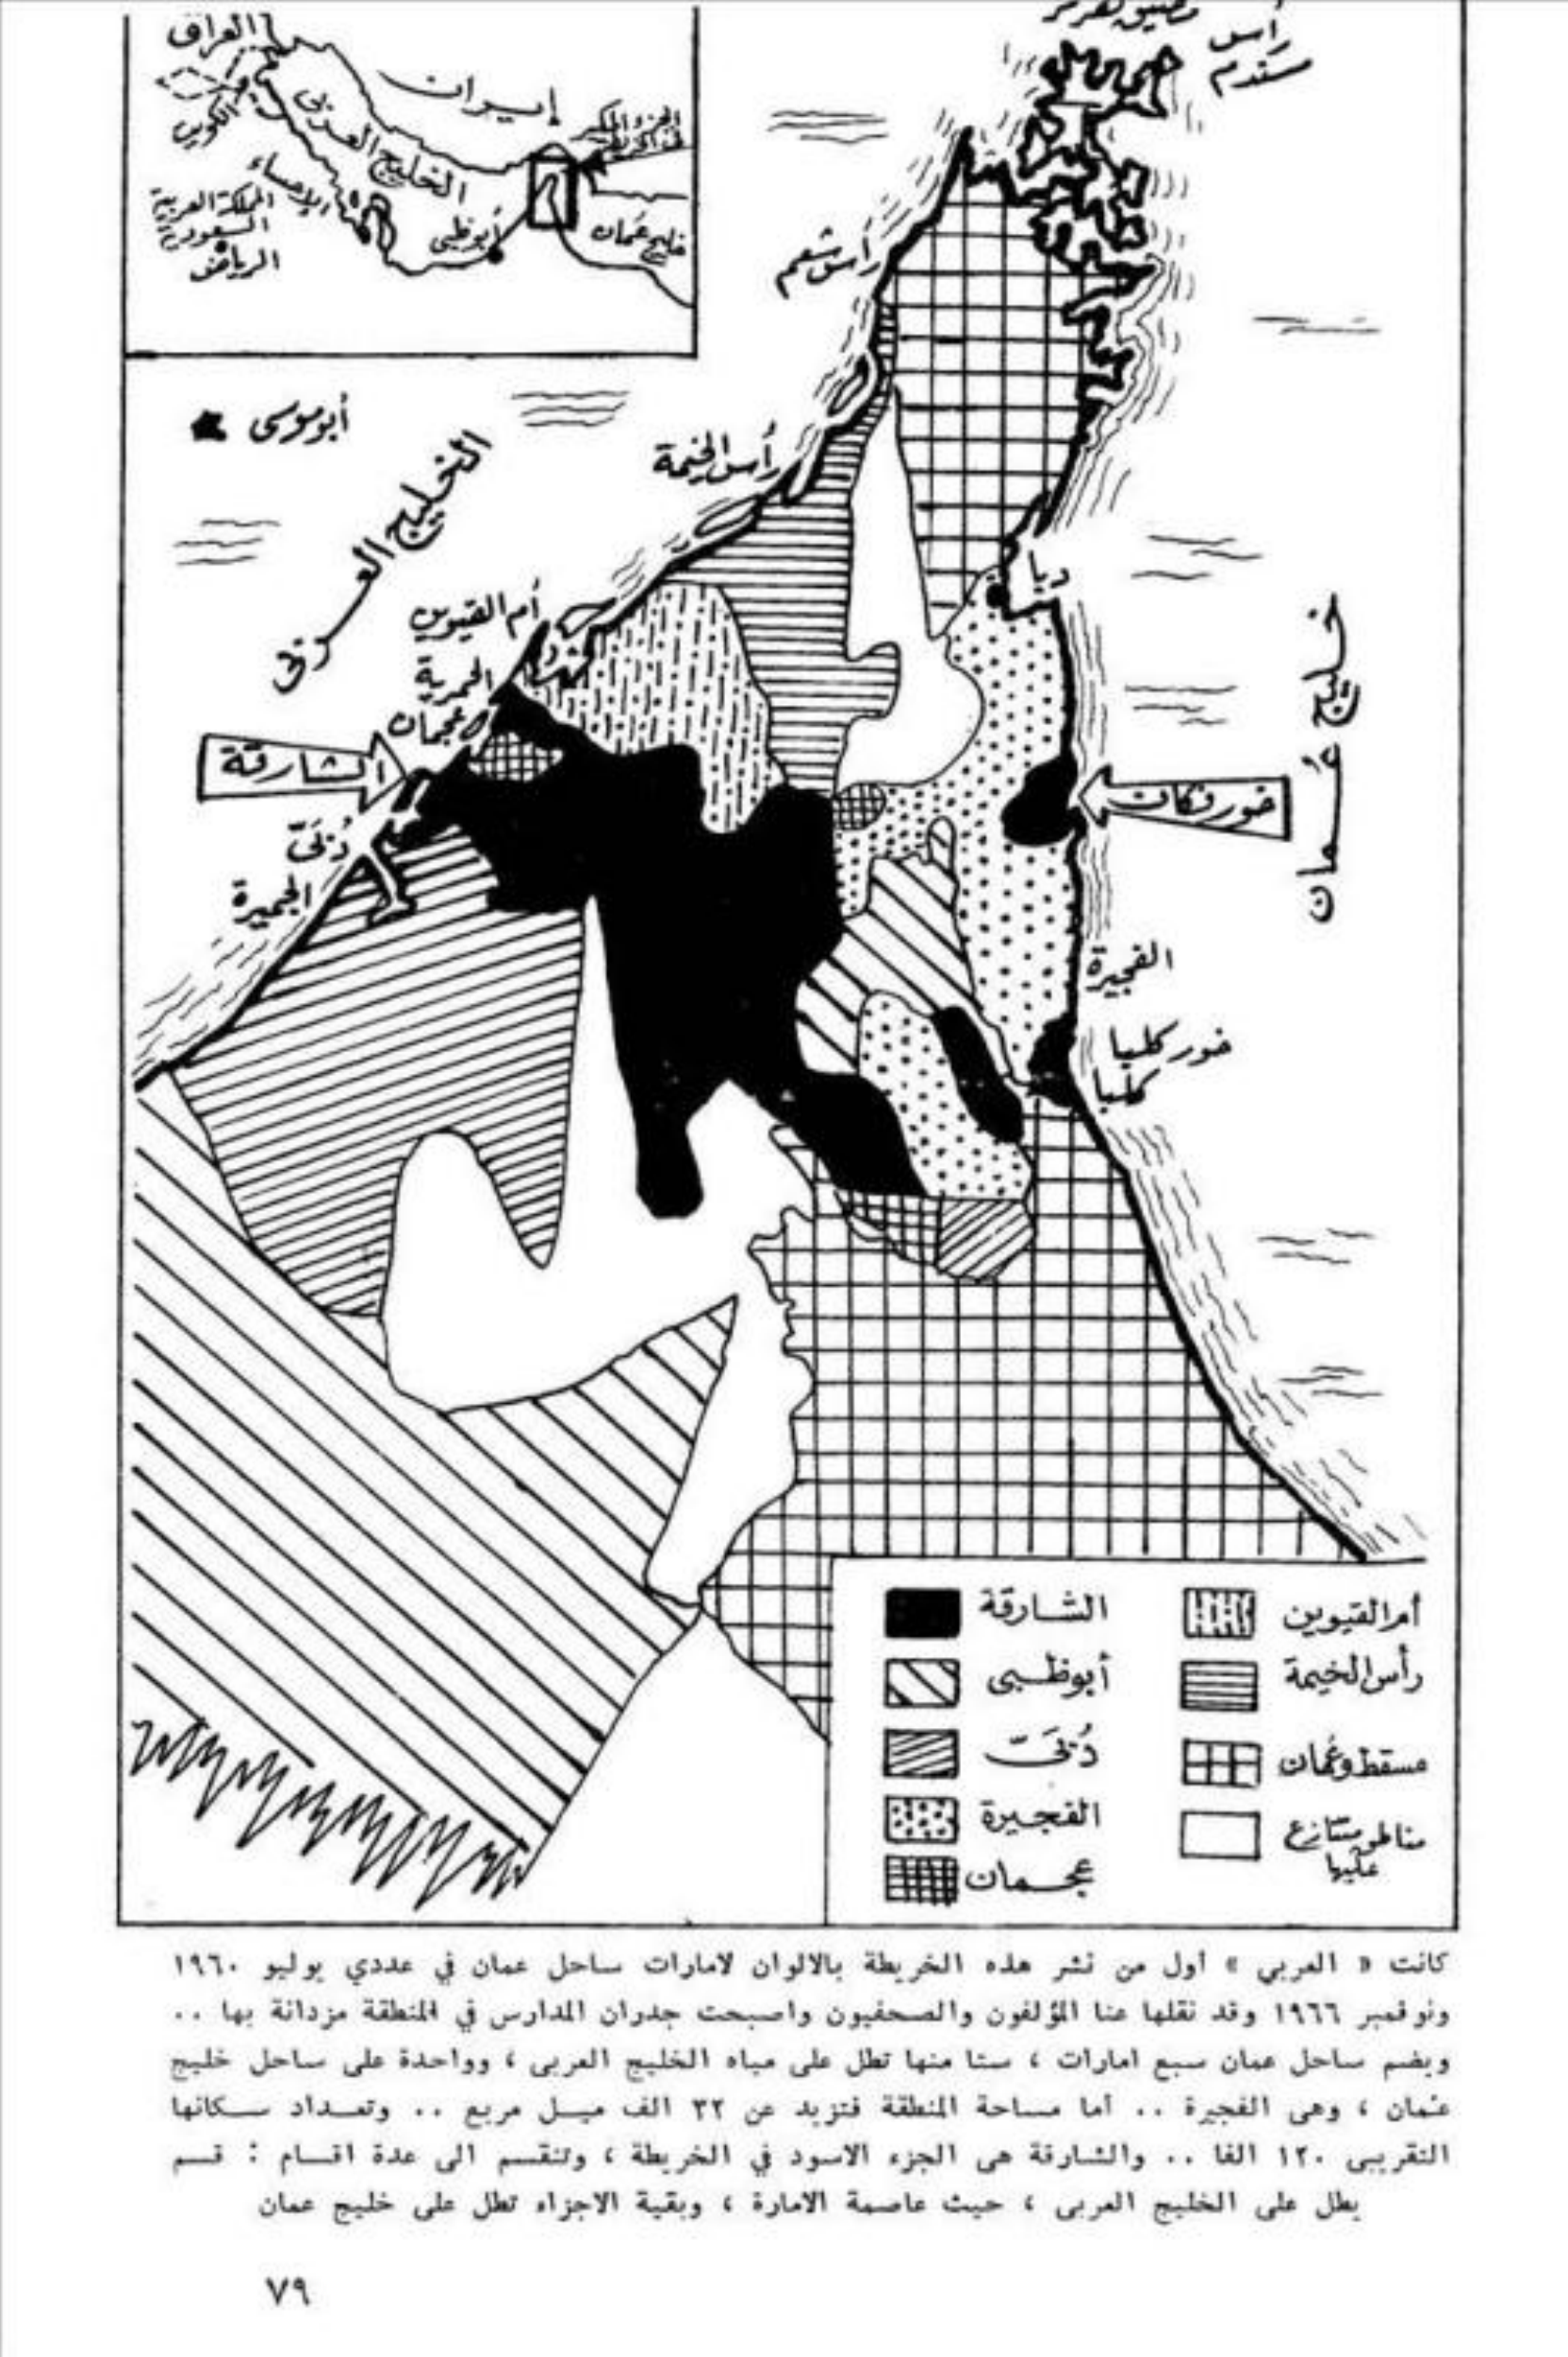 العراق
إيران
الكويت
الخليج العربى
الجزء المكبر
فى الخريطة
الإحساء
المملكة العربية
السعودية
الرياض
أبوظبى
خليج عمان
مضيق هرمز
رأس
مسندم
رأس شعم
أبوموسى
الخليج العربى
رأس الخيمة
دبا
أم القيوين
الحمرية
عجمان
الشارقة
دُبَىّ
الجميرة
خورفكان
خليج عُمان
الفجيرة
خور كلبا
كلبا
الشارقة
أم القيوين
أبوظبى
رأس الخيمة
دُبَىّ
مسقط وعُمان
الفجيرة
مناطق متنازع
عليها
عجمان
كانت « العربي » أول من نشر هذه الخريطة بالالوان لامارات ساحل عمان في عددي يوليو ١٩٦٠
ونوفمبر ١٩٦٦ وقد نقلها عنا المؤلفون والصحفيون واصبحت جدران المدارس في المنطقة مزدانة بها ..
ويضم ساحل عمان سبع امارات ، ستا منها تطل على مياه الخليج العربى ، وواحدة على ساحل خليج
عُمان ، وهى الفجيرة .. أما مساحة المنطقة فتزيد عن ٣٢ الف ميل مربع .. وتعداد سكانها
التقريبى ١٢٠ الفا .. والشارقة هى الجزء الاسود في الخريطة ، وتنقسم الى عدة اقسام : قسم
يطل على الخليج العربى ، حيث عاصمة الامارة ، وبقية الاجزاء تطل على خليج عمان
٧٩